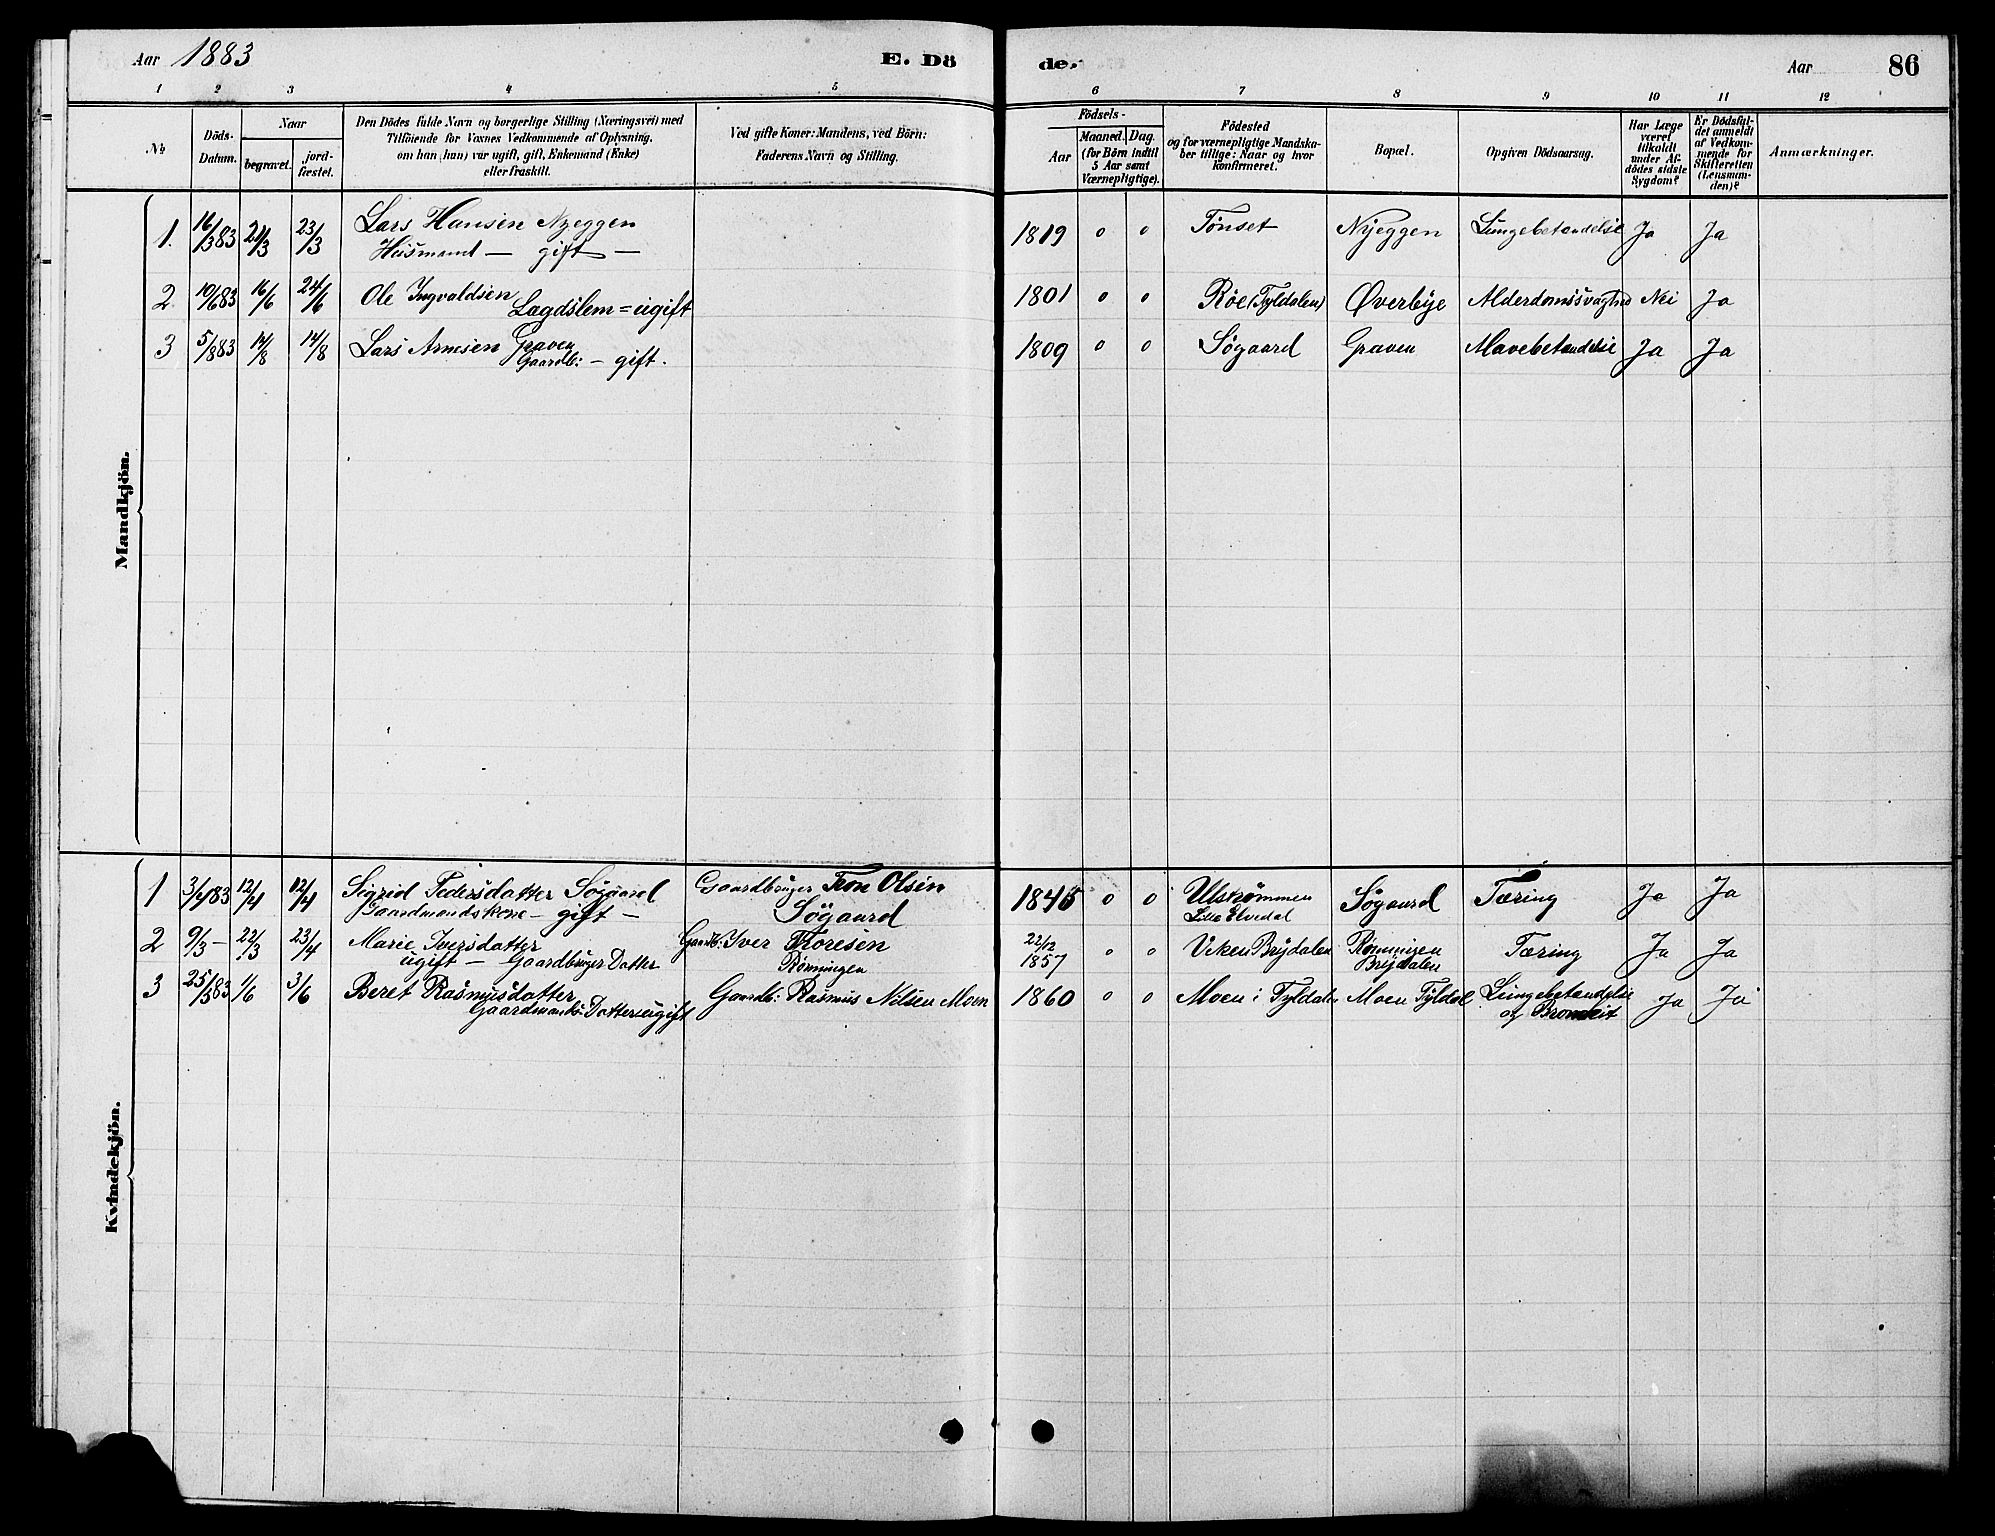 Aar 1883 E. Dö de. Aar 86
1 2 3 4 5 6 7 8 9 10 11 12
No
Döds-Datum.
Naar
begravet.
jord-fæstet.
Den Dödes fulde Navn og borgerlige Stilling (Næringsvei) med
Tilföiende for Voxnes Vedkommende af Oplysning,
om han (hun) var ugift, gift, Enkemand (Enke)
eller fraskilt.
Ved gifte Koner: Mandens, ved Börn:
Faderens Navn og Stilling.
Födsels-
Aar
Maaned. Dag.
(for Börn indtil
5 Aar samt
Værnepligtige).
Födested
og for værnepligtige Mandska-
ber tillige: Naar og hvor
konfirmeret.
Bopæl.
Opgiven Dödsaarsag.
Har Læge
været
tilkaldt
under Af-
dödes sidste
Sygdom?
Er Dödsfal-
det anmeldt
af Vedkom-
mende for
Skifteretten
(Lensman-
den)?
Anmærkninger.
Mandkjön.
1. 16/3 83 21/3 23/3 Lars Hansen Nyeggen 1819 0 0 Tönset Nyeggen Lungebetændelse Ja Ja
Husmand – gift –
2. 10/6 83 16/6 24/6 Ole Ingvaldsen 1801 0 0 Röe (Tyldalen) Øverbye Alderdomssvaghed Nei Ja
Lagdslem = ugift
3 5/8 83 14/8 14/8 Lars Arnesen Graven 1809 0 0 Sögaard Graven Mavebetændelse Ja Ja
Gaardb: – gift.
Kvindekjön.
1 3/4 83 12/4 12/4 Sigrid Pedersdatter Sögaard Gaardbruger Tron Olsen 1845 0 0 Ulströmmen Sögaard Tæring Ja Ja
Gaardmandskone – gift – Sögaard Lille Elvedal
2 9/3 – 22/3 23/4 Marie Iversdatter Gaardb: Iver Toresen 22/12 1857 0 0 Viken Brydalen Rönningen Tæring Ja Ja
ugift – Gaardbruger Datter Rönningen Brydalen
3 25/5 83 1/6 3/6 Beret Rasmusdatter Gaardb: Rasmus Nilsen Moen 1860 0 0 Moen i Tyldalen Moen Tyldal Lungebetændelse Ja Ja
Gaardmands: Datter ugift og Bronkit